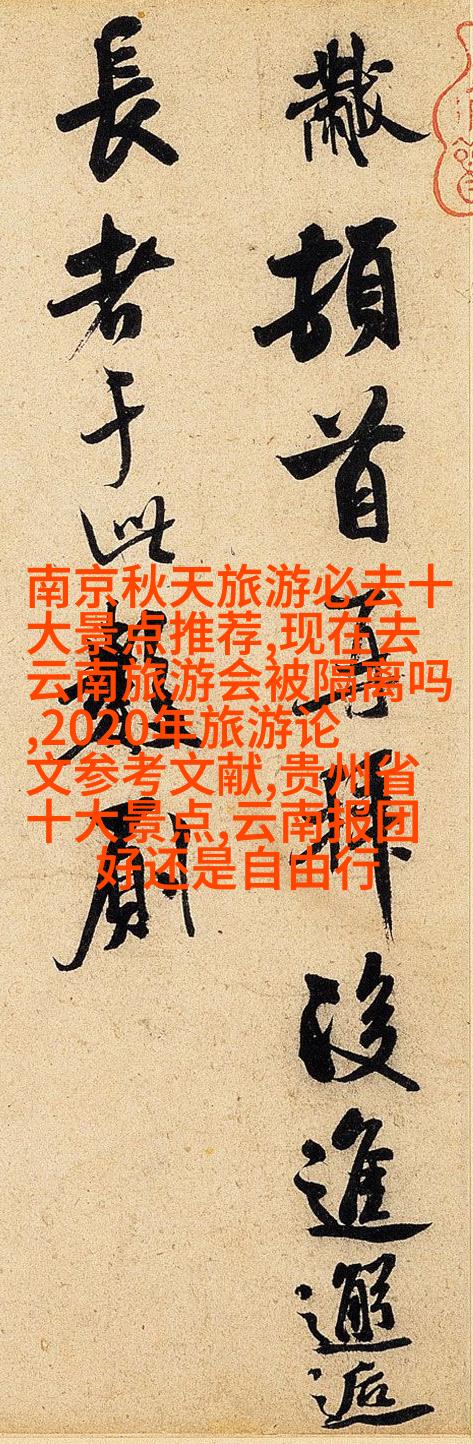 黻頓首再拜後進邂逅
長者于此數厠
南京秋天旅游必去十
大景点推荐,现在去
云南旅游会被隔离吗
,2020年旅游论
文参考文献,贵州省
十大景点,云南报团
好还是自由行